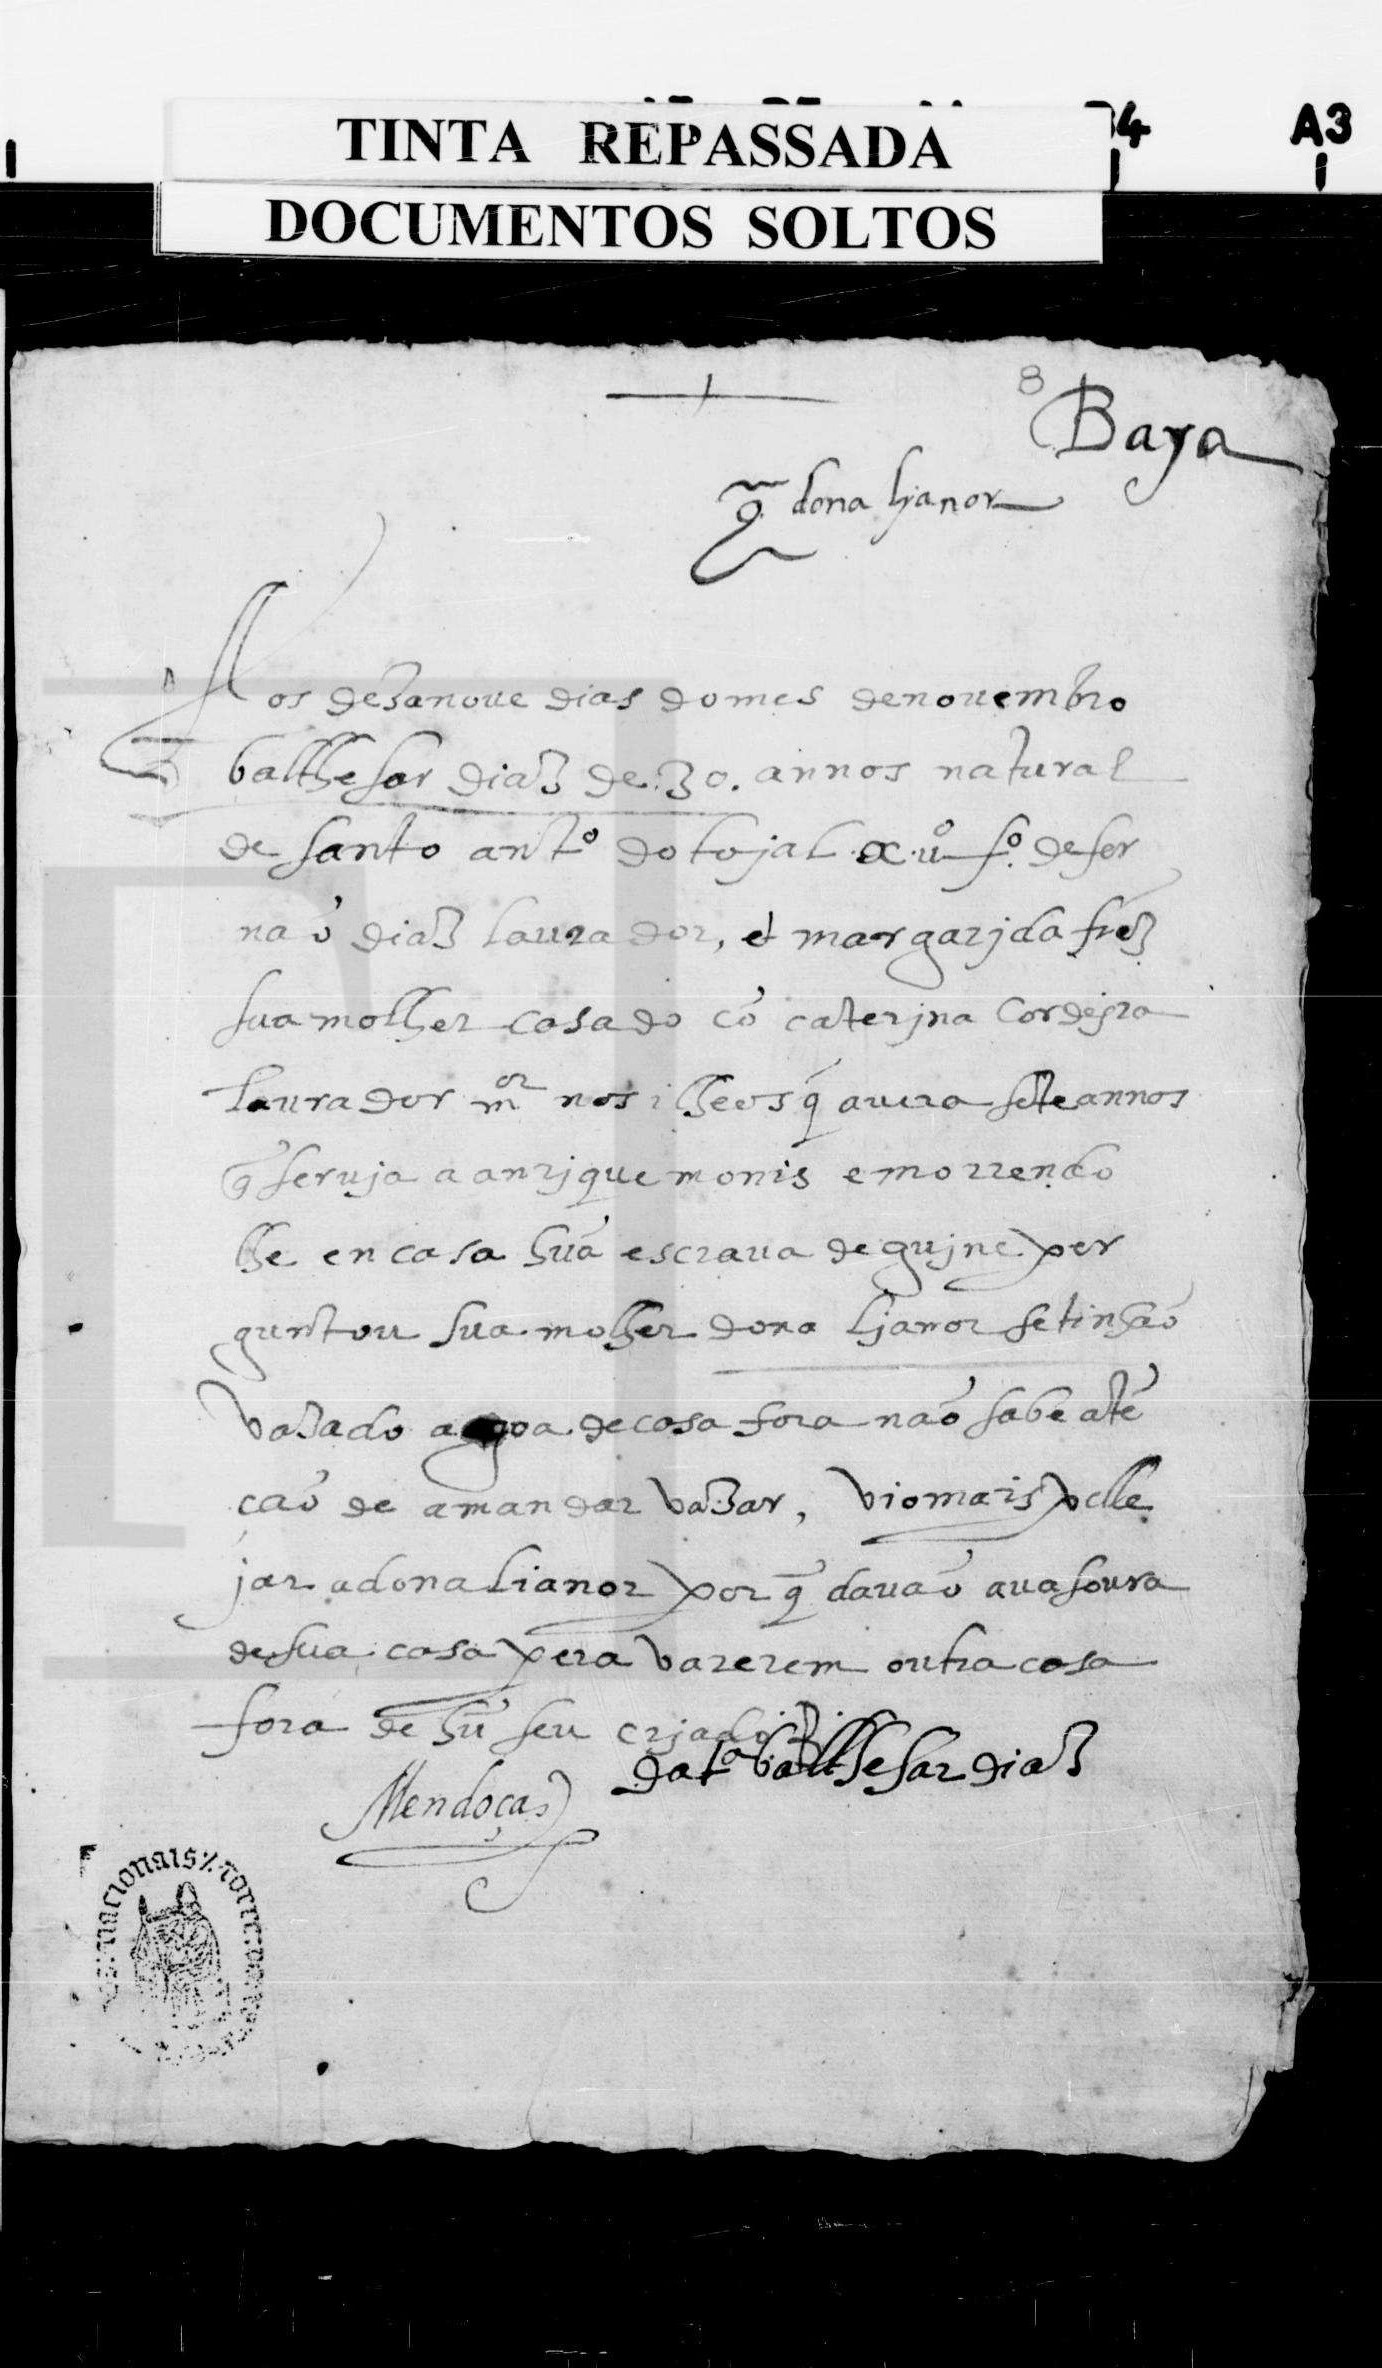 4 A3
TINTA REPASSADA
DOCUMENTOS SOLTOS
8
Baya
q̃ dona lianor
Aos dezanoue dias do mes de nouembro
balthesar diaz de 30. annos natural
de santo antº do tojal .x.uº fº. de fer
naõ diaz laurador, et margarjda frz̃
sua molher casado cõ caterjna Cordejra
laurador mºʳ nos ilheos q̃ auera sete annos
q̃ seruja a anrjque monis e morrendo
lhe en casa huã escraua de gujne per
guntou sua molher dona ljanor se tinhaõ
vazado agoa de casa fora naõ sabe atẽ
çaõ de a mandar vazar, vio mais pelle
jar a dona lianor por q̃ dauaõ a vasoura
de sua casa pera varerem outra casa
fora de hũ seu crjado
da tª balthesar diaz
Mendoça
nacionais torre